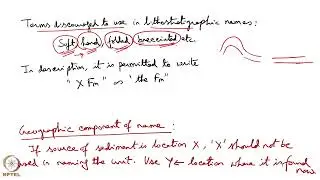 Terms discouraged to use in lithostratigraphic names:
Soft, hard, folded, brecciated etc.
In description, it is permitted to write
"X Fm" or "the Fm"
Geographic component of name:
If source of sediment is location X, 'X' should not be
used in naming the unit. Use Y ← location where it is found
now.
NPTEL